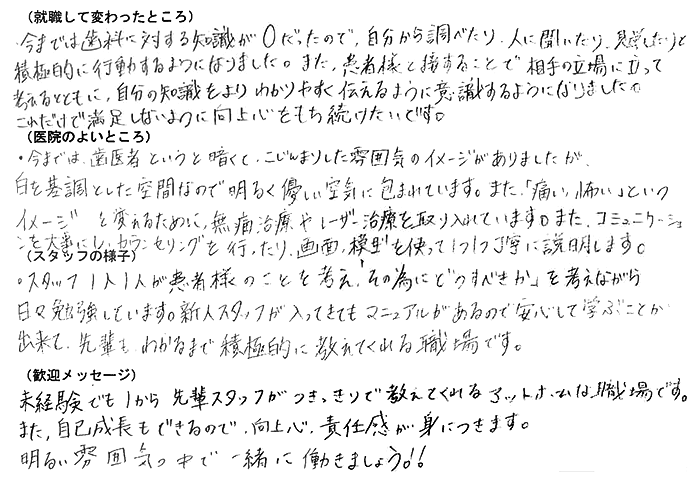 （就職して変わったところ）
・今までは歯科に対する知識が0だったので、自分から調べたり、人に聞いたり、見学したりと
積極的に行動するようになりました。また、患者様と接することで相手の立場に立って
考えるとともに、自分の知識をよりわかりやすく伝えるように意識するようになりました。
これだけで満足しないように向上心をもち続けたいです。
（医院のよいところ）
・今までは、歯医者というと暗くて、こじんまりした雰囲気のイメージがありましたが、
白を基調とした空間なので明るく優しい空気に包まれています。また、「痛い、怖い」という
イメージを変えるために、無痛治療やレーザー治療を取り入れています。また、コミュニケーショ
ンを大事にし、カウンセリングを行ったり、画面、模型を使って1つ1つ丁寧に説明します。
（スタッフの様子）
・スタッフ1人1人が患者様のことを考え、「その為にどうすべきか」を考えながら
日々勉強しています。新人スタッフが入ってきてもマニュアルがあるので安心して学ぶことが
出来て、先輩も、わかるまで積極的に教えてくれる職場です。
（歓迎メッセージ）
未経験でも1から先輩スタッフがつきっきりで教えてくれるアットホームな職場です。
また、自己成長もできるので、向上心、責任感が身につきます。
明るい雰囲気の中で一緒に働きましょう!!